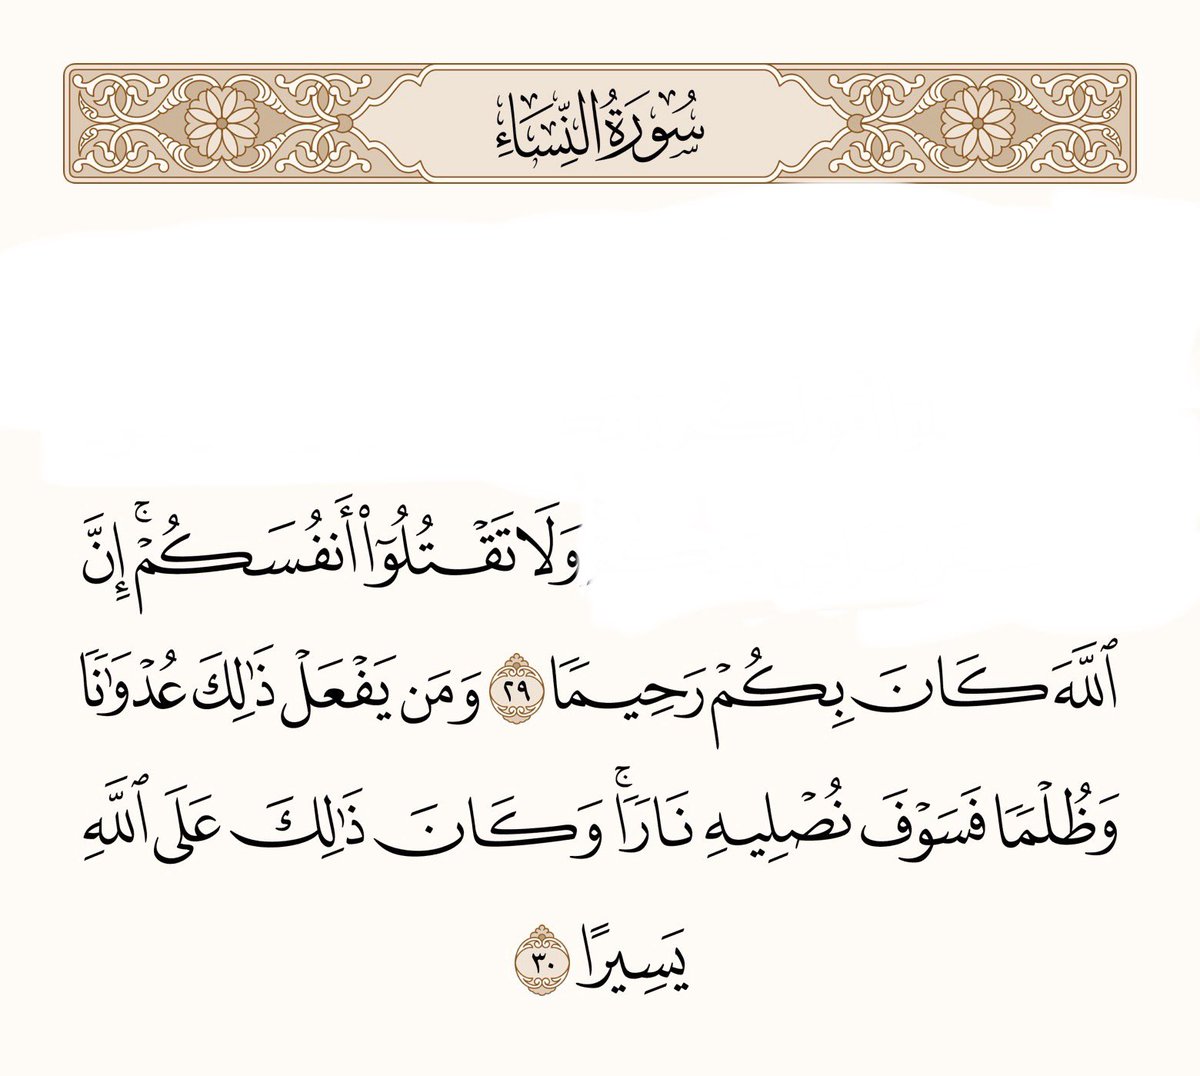 سُورَةُ النِّسَاءِ
وَلَا تَقْتُلُوٓا۟ أَنفُسَكُمْ ۚ إِنَّ
ٱللَّهَ كَانَ بِكُمْ رَحِيمًا ٢٩ وَمَن يَفْعَلْ ذَٰلِكَ عُدْوَٰنًا
وَظُلْمًا فَسَوْفَ نُصْلِيهِ نَارًا ۚ وَكَانَ ذَٰلِكَ عَلَى ٱللَّهِ
يَسِيرًا ٣٠